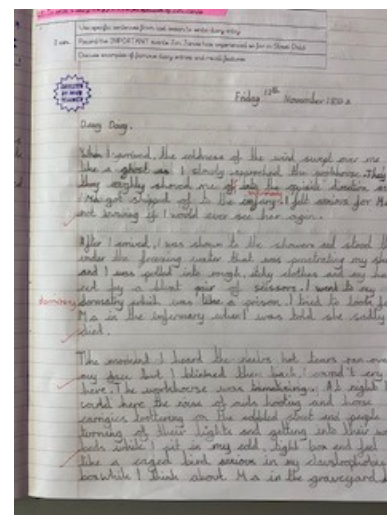 Use specific sentences from last lesson to write diary entry
I can: Record the IMPORTANT events Jim Jarvis has experienced so far in Street Child
Discuss examples of famous diary entries and recall features
Friday 12th November
Dear Diary,
When I arrived, the coldness of the wind swept over me
like a ghost as I slowly approached the workhouse. They
they roughly shoved me in the opposite direction
Ma got shipped of to the infirmary. I felt for M
not knowing if I would ever see her again.
After I arrived, I was shown to the showers and stood
under the freezing water that was penetrating my
and I was pulled into rough, itchy clothes and my
cut by a blunt pair of scissors. I went to my
dormitory
which was like a prison. I tried to look fo
Ma in the infermary when I was told she sadly
died.
The moment I heard the news hot tears ran ove
my face but I blinked them back, I couldn't cry
here. The workhouse was At night
could here the noise of owls hooting and horse
trottering on the cobbled street and people
turning of their lights and getting into their
beds while I sit in my cold, tight box and feel
like a caged bird in my
box while I think about Ma in the graveyard